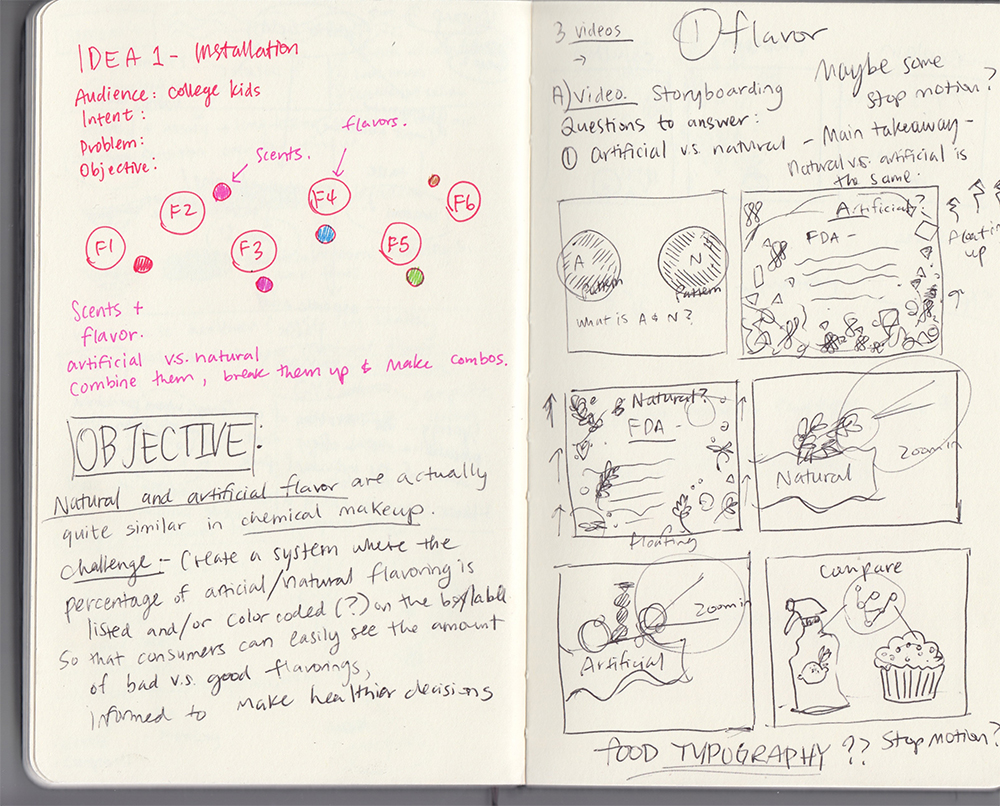 IDEA 1 - Installation
Audience: college kids
Intent:
Problem:
Objective:
flavors.
scents.
F1
F2
F3
F4
F5
F6
Scents +
flavor.
artificial v.s. natural
combine them, break them up & make combos.
OBJECTIVE:
Natural and artificial flavor are actually
quite similar in chemical makeup.
Challenge - Create a system where the
percentage of articial/natural flavoring is
listed and/or color coded (?) on the box/label
So that consumers can easily see the amount
of bad v.s. good flavorings,
informed to make healthier decisions
3 videos
→
① flavor
Maybe some
stop motion?
A) video Storyboarding
Questions to answer:
① artificial v.s. natural - Main takeaway -
Natural vs. artificial is
the same.
A
pattern
N
pattern
what is A & N?
Artificial?
FDA -
floating
up
Natural?
FDA -
floating
Natural
Zoom in
Artificial
Zoom in
Compare
FOOD TYPOGRAPHY ?? Stop motion?